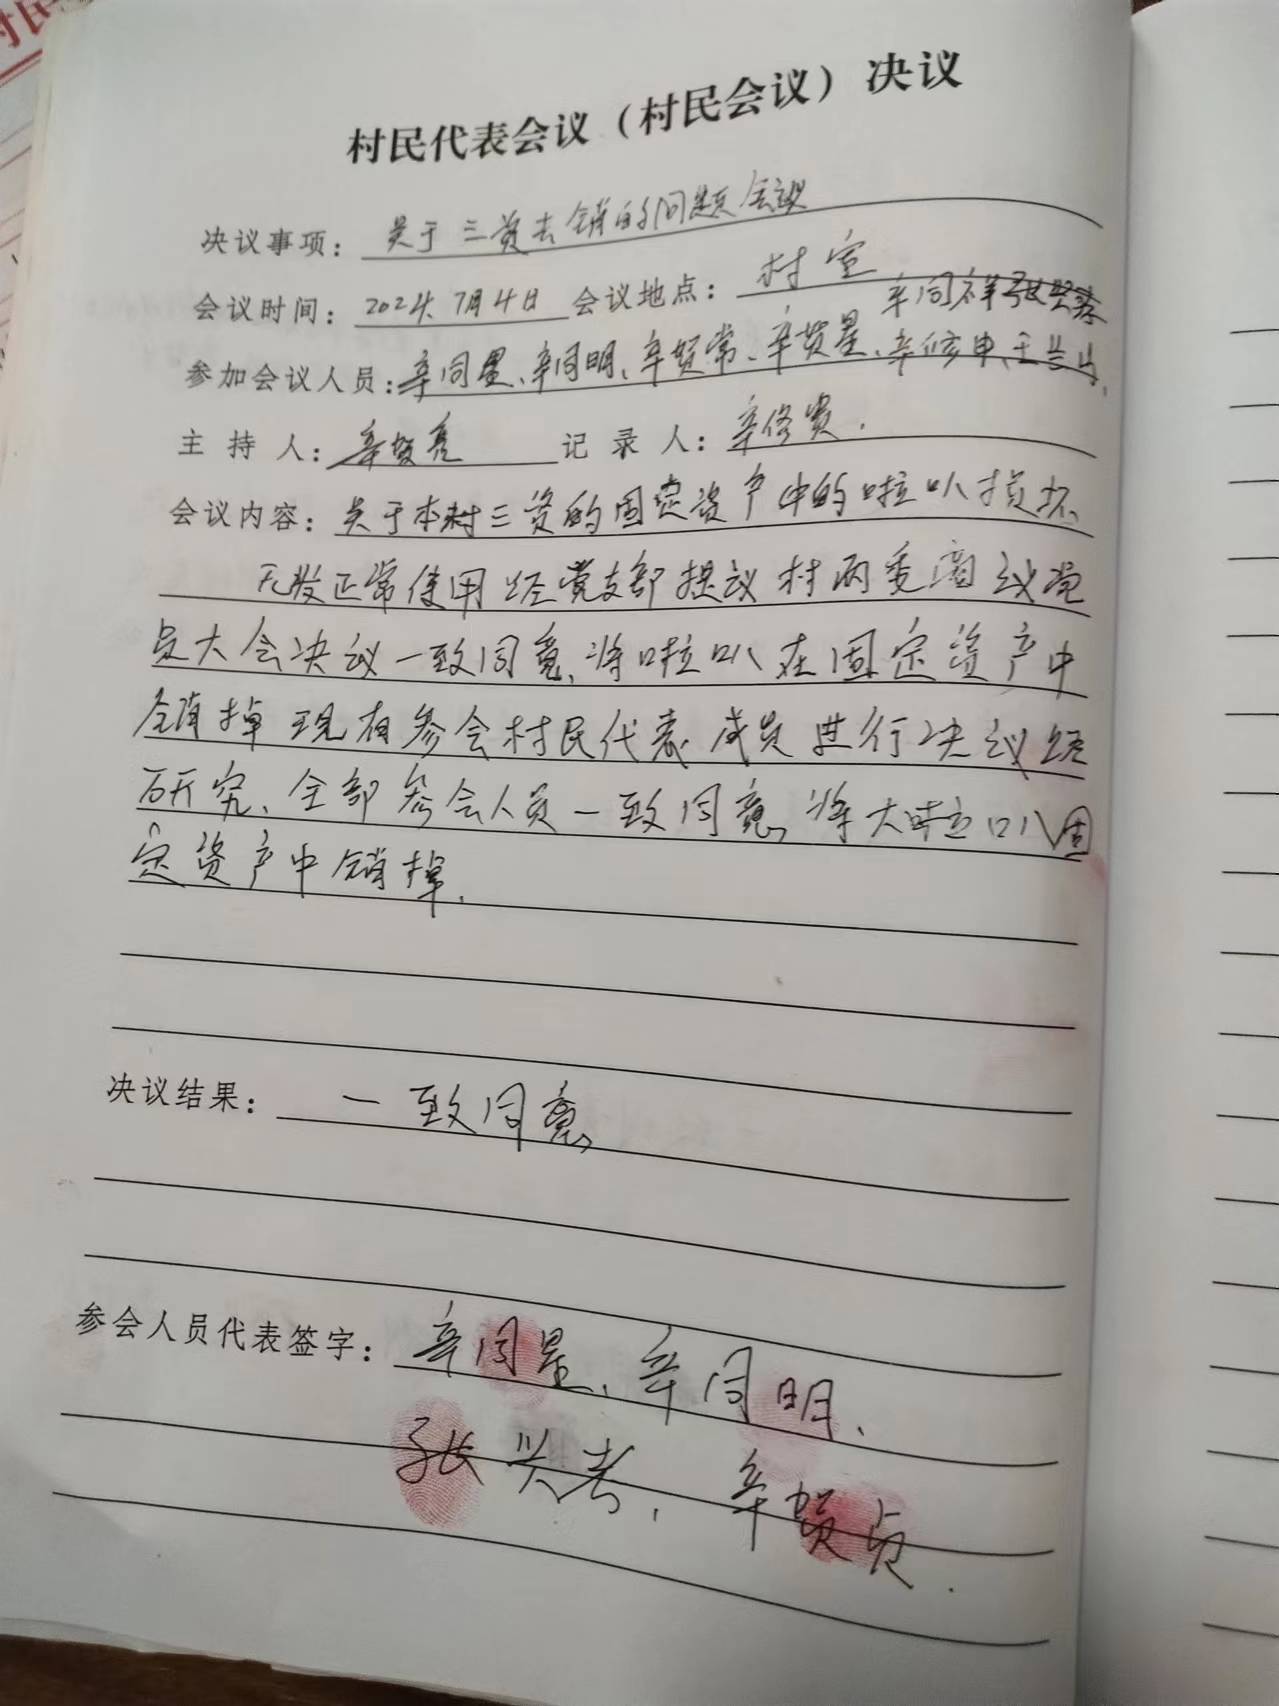 村民
村民代表会议（村民会议）决议
决议事项：关于三资去销的问题会议
会议时间：2024.7月4日 会议地点：村室
辛同祥 张兴
参加会议人员：辛同星、辛同明、辛贺常、辛贺星、辛修申、王
主持人：辛贺亮 记录人：辛修贵.
会议内容：关于本村三资的固定资产中的啦叭损坏
无发正常使用 经党支部提议 村两委商议党
员大会决议一致同意、将啦叭在固定资产中
销掉 现有参会村民代表成员进行决议经
研究、全部参会人员一致同意 将大啦叭固
定资产中销掉.
决议结果：一致同意
参会人员代表签字：辛同星、辛同明、
张兴孝、辛贺贞.